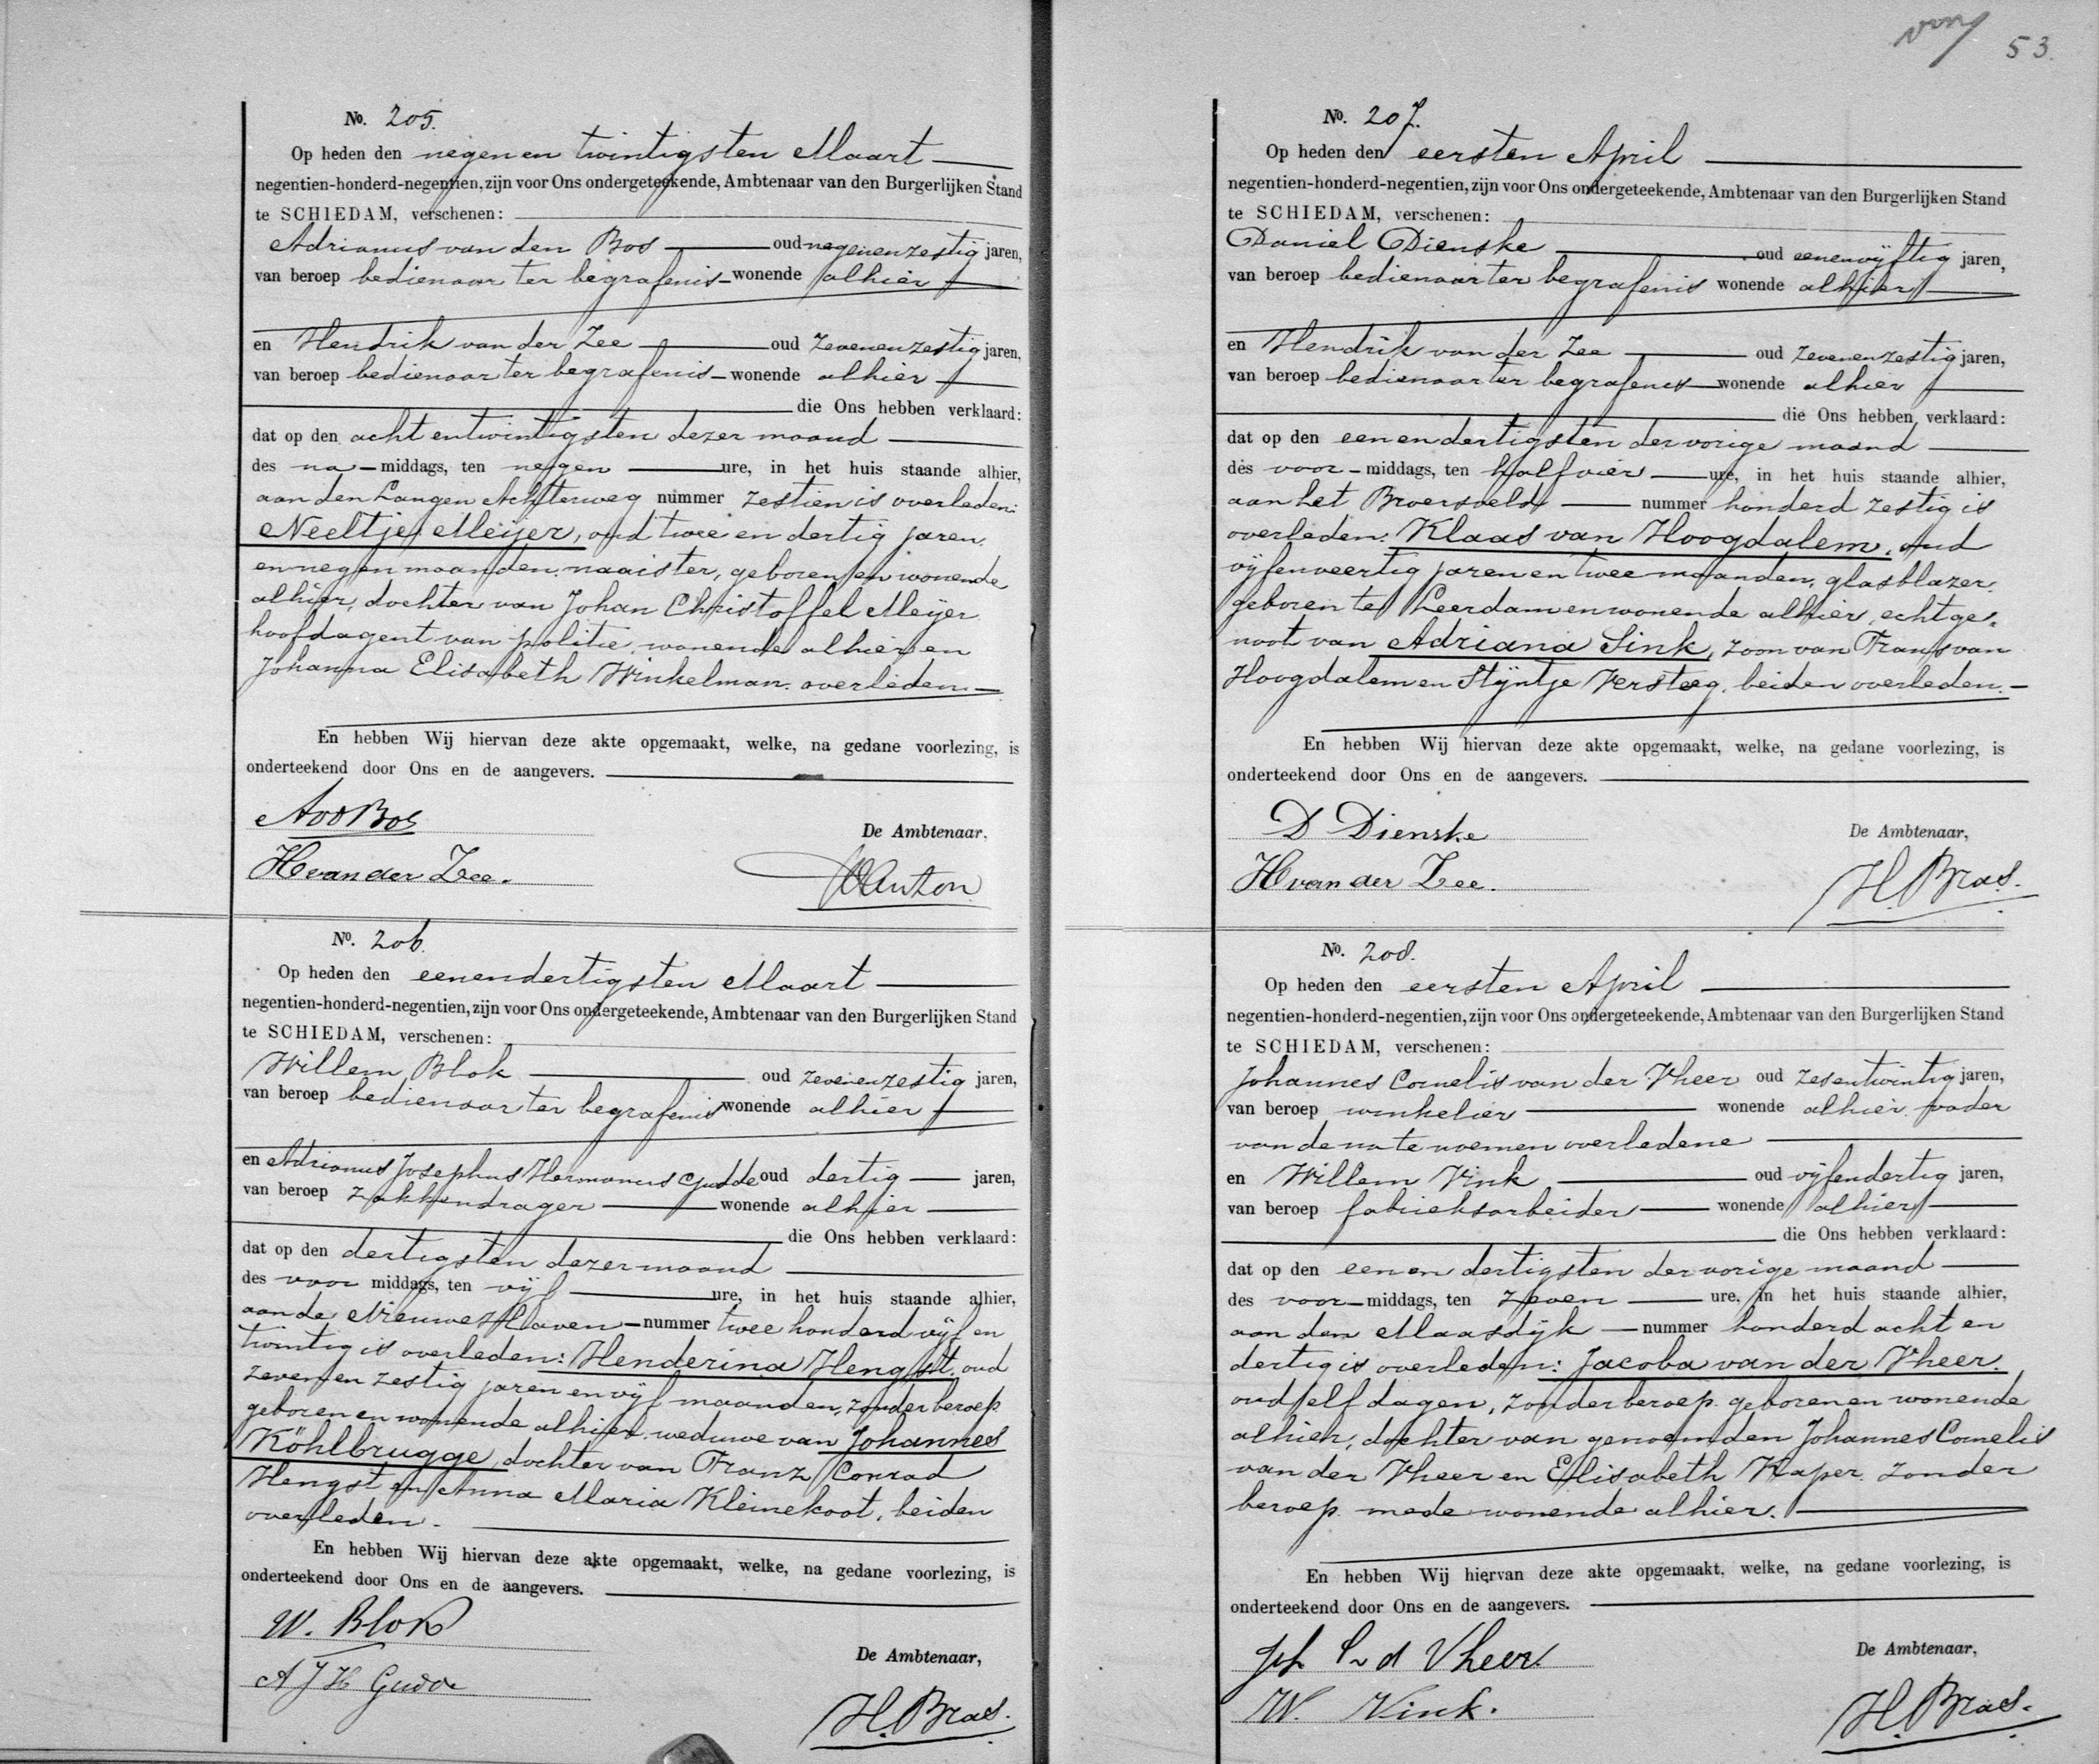 No. 205.
Op heden den negen en twintigsten Maart
negentien-honderd-negentien, zijn voor Ons ondergeteekende, Ambtenaar van den Burgerlijken Stand
te SCHIEDAM, verschenen:
Adrianus van den Bos oud negenenzestig jaren,
van beroep bedienaar ter begrafenis wonende alhier
en Hendrik van der Zee oud zevenenzestig jaren,
van beroep bedienaar ter begrafenis wonende alhier
die Ons hebben verklaard:
dat op den acht entwintigsten dezer maand
des na-middags, ten negen ure, in het huis staande alhier,
aan den Langen Achterweg nummer zestien is overleden:
Neeltje Meijer, oud twee en dertig jaren
en negen maanden, naaister, geboren en wonende
alhier, dochter van Johan Christoffel Meijer
hoofdagent van politie, wonende alhier en
Johanna Elisabeth Winkelman, overleden.
En hebben Wij hiervan deze akte opgemaakt, welke, na gedane voorlezing, is
onderteekend door Ons en de aangevers.
AvdBos
De Ambtenaar,
H van der Zee.
No. 206.
Op heden den eenendertigsten Maart
negentien-honderd-negentien, zijn voor Ons ondergeteekende, Ambtenaar van den Burgerlijken Stand
te SCHIEDAM, verschenen:
Willem Blok oud zevenenzestig jaren,
van beroep bedienaar ter begrafenis wonende alhier
en Adrianus Josephus Hermanus Gudde oud dertig jaren,
van beroep zakkendrager wonende alhier
die Ons hebben verklaard:
dat op den dertigsten dezer maand
des voor middags, ten vijf ure, in het huis staande alhier,
aan de Nieuwe Haven nummer twee honderd vijf en
twintig is overleden: Henderina Hengst, oud
zeven en zestig jaren en vijf maanden, zonder beroep
geboren en wonende alhier, weduwe van Johannes
Köhlbrugge, dochter van Franz Conrad
Hengst en Anna Maria Kleinekoot, beiden
overleden.
En hebben Wij hiervan deze akte opgemaakt, welke, na gedane voorlezing, is
onderteekend door Ons en de aangevers.
W. Blok
De Ambtenaar,
A J H Gudde
H. Bras.
53.
No. 207.
Op heden den eersten April
negentien-honderd-negentien, zijn voor Ons ondergeteekende, Ambtenaar van den Burgerlijken Stand
te SCHIEDAM, verschenen:
Daniel Dienske oud eenenvijftig jaren,
van beroep bedienaar ter begrafenis wonende alhier
en Hendrik van der Zee oud zevenenzestig jaren,
van beroep bedienaar ter begrafenis wonende alhier
die Ons hebben verklaard:
dat op den een en dertigsten der vorige maand
des voor-middags, ten half vier ure, in het huis staande alhier,
aan het Broersveld nummer honderd zestig is
overleden: Klaas van Hoogdalem, oud
vijfenveertig jaren en twee maanden, glasblazer,
geboren te Leerdam en wonende alhier, echtge-
noot van Adriana Sink, zoon van Frans van
Hoogdalem en Stijntje Versteeg, beiden overleden.
En hebben Wij hiervan deze akte opgemaakt, welke, na gedane voorlezing, is
onderteekend door Ons en de aangevers.
D Dienske
De Ambtenaar,
H van der Zee.
H. Bras.
No. 208.
Op heden den eersten April
negentien-honderd-negentien, zijn voor Ons ondergeteekende, Ambtenaar van den Burgerlijken Stand
te SCHIEDAM, verschenen:
Johannes Cornelis van der Vheer oud zesentwintig jaren,
van beroep winkelier wonende alhier, vader
van de na te noemen overledene
en Willem Vink oud vijfendertig jaren,
van beroep fabrieksarbeider wonende alhier
die Ons hebben verklaard:
dat op den een en dertigsten der vorige maand
des voor-middags, ten zeven ure, in het huis staande alhier,
aan den Maasdijk nummer honderd acht en
dertig is overleden: Jacoba van der Vheer,
oud elf dagen, zonder beroep, geboren en wonende
alhier, dochter van genoemden Johannes Cornelis
van der Vheer en Elisabeth Kaper, zonder
beroep, mede wonende alhier.
En hebben Wij hiervan deze akte opgemaakt, welke, na gedane voorlezing, is
onderteekend door Ons en de aangevers.
Joh C v d Vheer
De Ambtenaar,
W. Vink.
H. Bras.